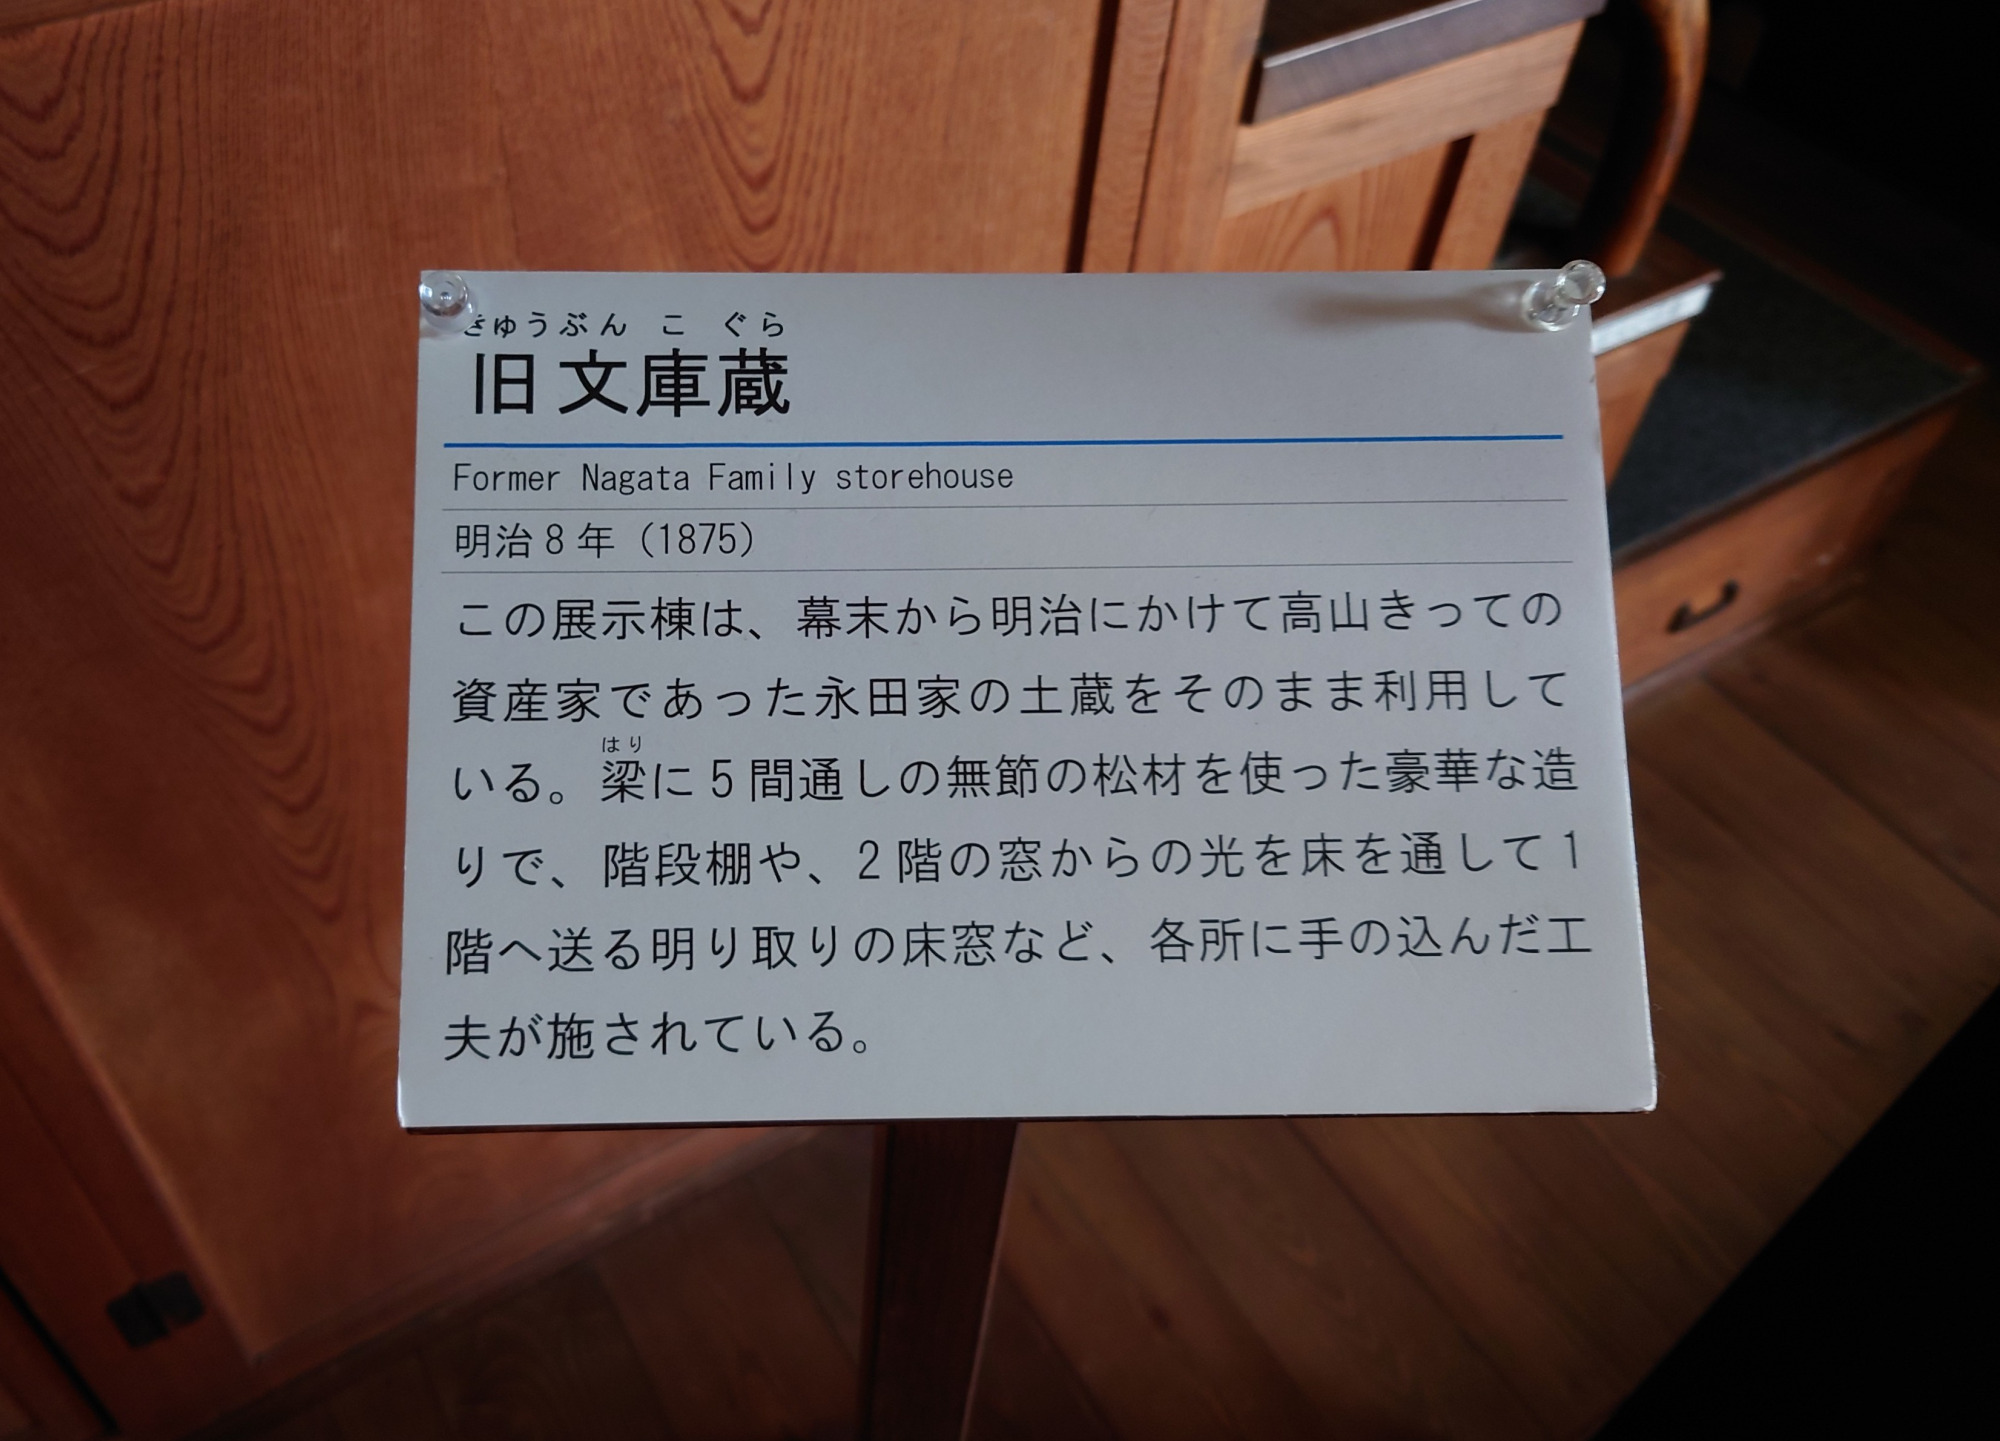 きゅうぶん こ ぐら
旧文庫蔵
Former Nagata Family storehouse
明治8年（1875）
この展示棟は、幕末から明治にかけて高山きっての
資産家であった永田家の土蔵をそのまま利用して
はり
いる。梁に5間通しの無節の松材を使った豪華な造
りで、階段棚や、2階の窓からの光を床を通して1
階へ送る明り取りの床窓など、各所に手の込んだ工
夫が施されている。